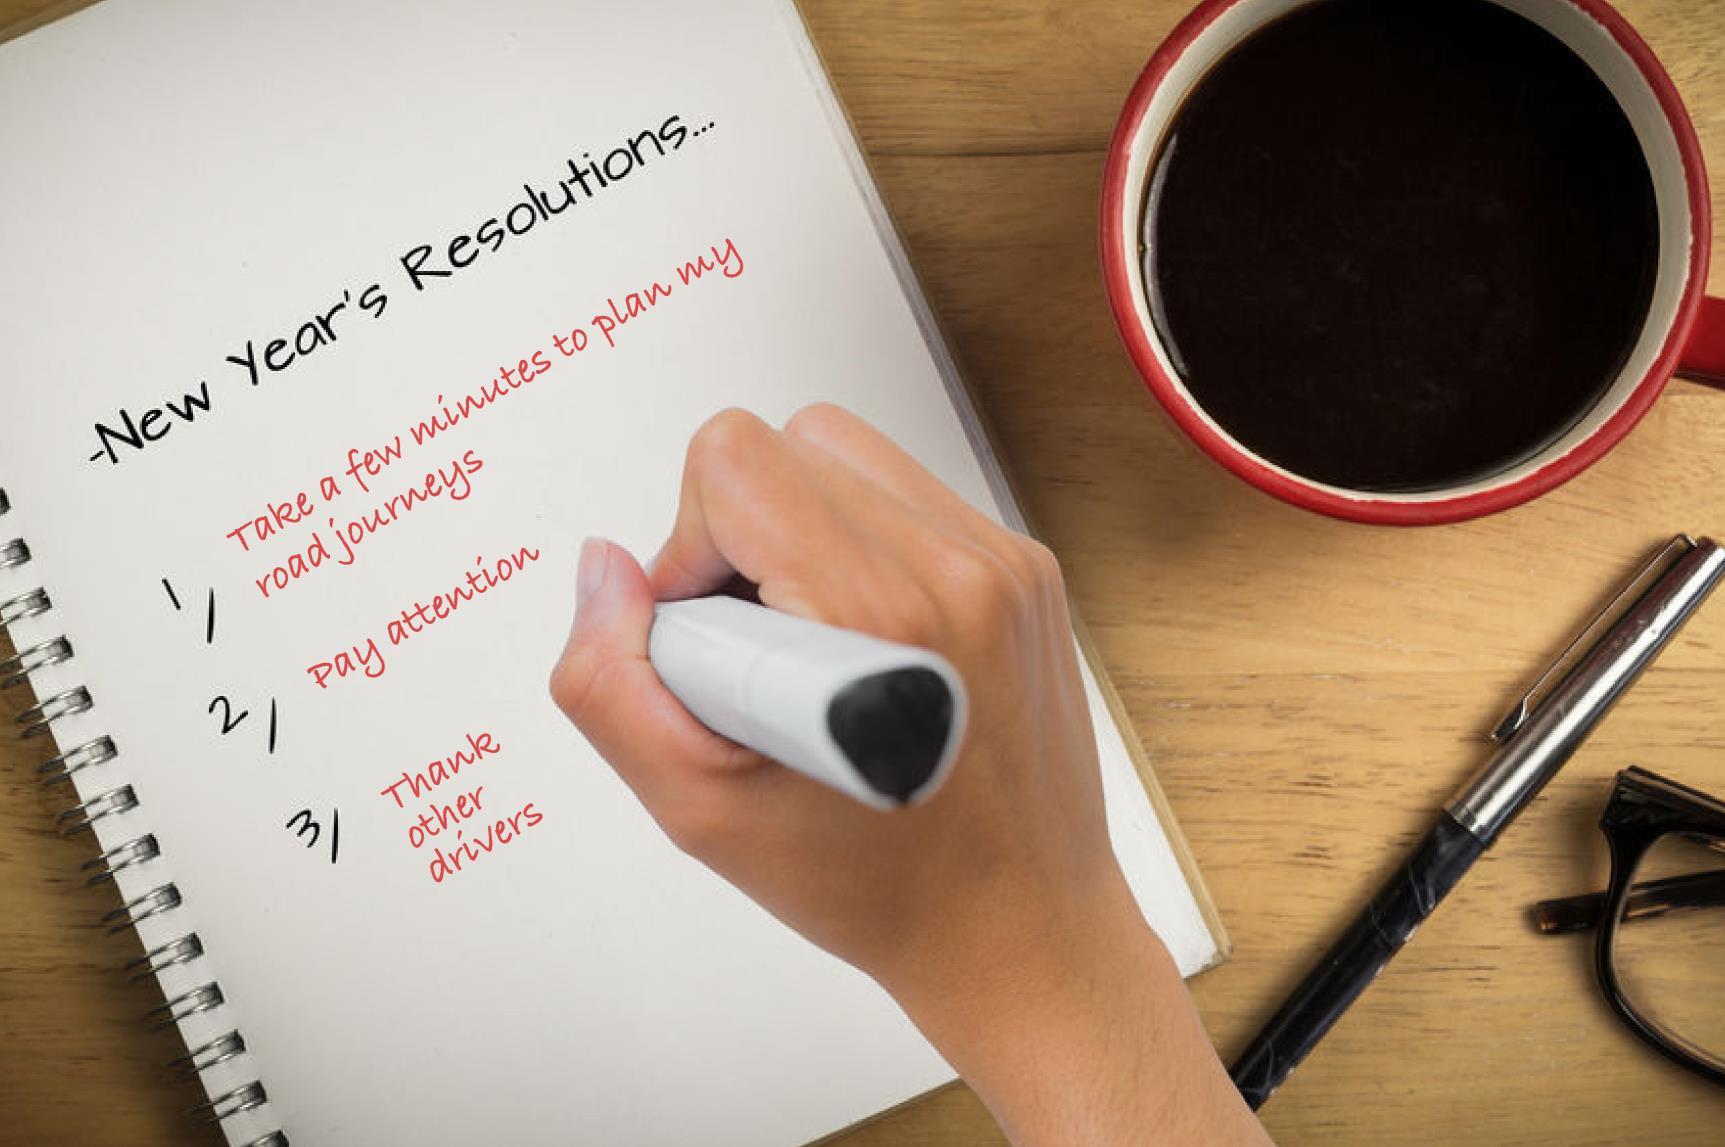 -New Year's Resolutions...
1/ Take a few minutes to plan my
road journeys
2/ Pay attention
3/ Thank
other
drivers